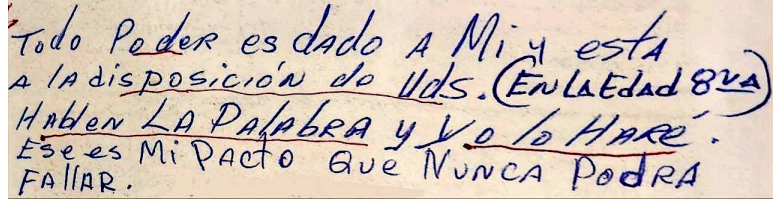 Todo Poder es dado A Mi y estA
A lA disposición de Uds. (En la Edad 8va)
Hablen LA PAlAbRA y Yo lo HARé.
Ese es Mi PActo Que NuncA PodRA
FAllAR.